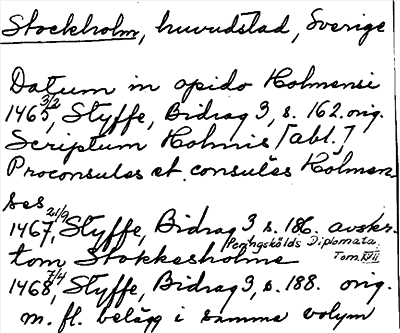 Stockholm, huvudstad, Sverige
Datum in opido Holmensi
1465 3/2, Styffe, Bidrag 3, s. 162. orig.
Scriptum Holmis [abl.]
Proconsules et consules Holmen-
ses
1467 21/9, Styffe, Bidrag 3, s. 186. avskr.
Peringskölds Diplomata. Tom. VII
tom Stokkesholme
1468 7/4, Styffe, Bidrag 3, s. 188. orig.
m. fl. belägg i samma volym